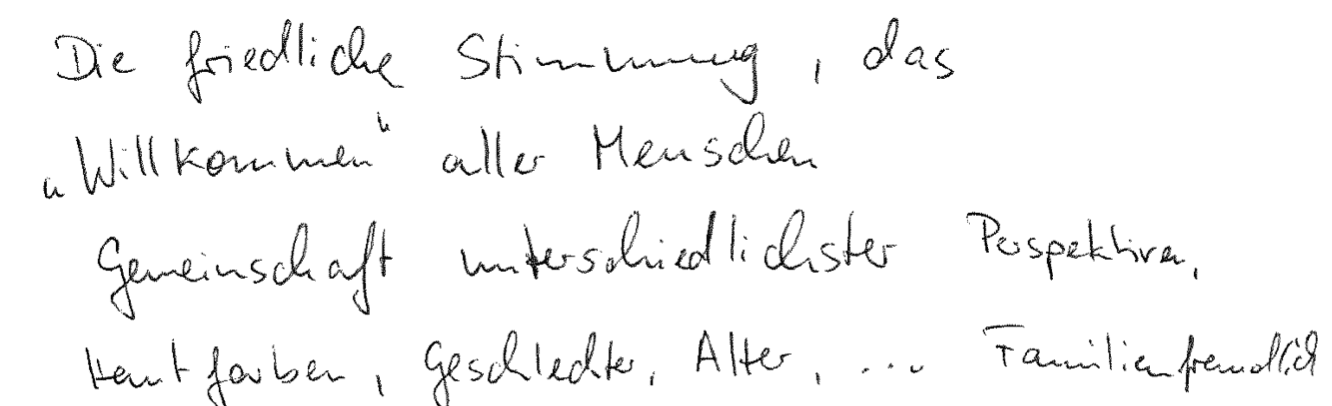 Die friedliche Stimmung, das
„Willkommen“ aller Menschen
Gemeinschaft unterschiedlichster Perspektiven,
Hautfarben, Geschlechter, Alter, ... Familienfreundlich